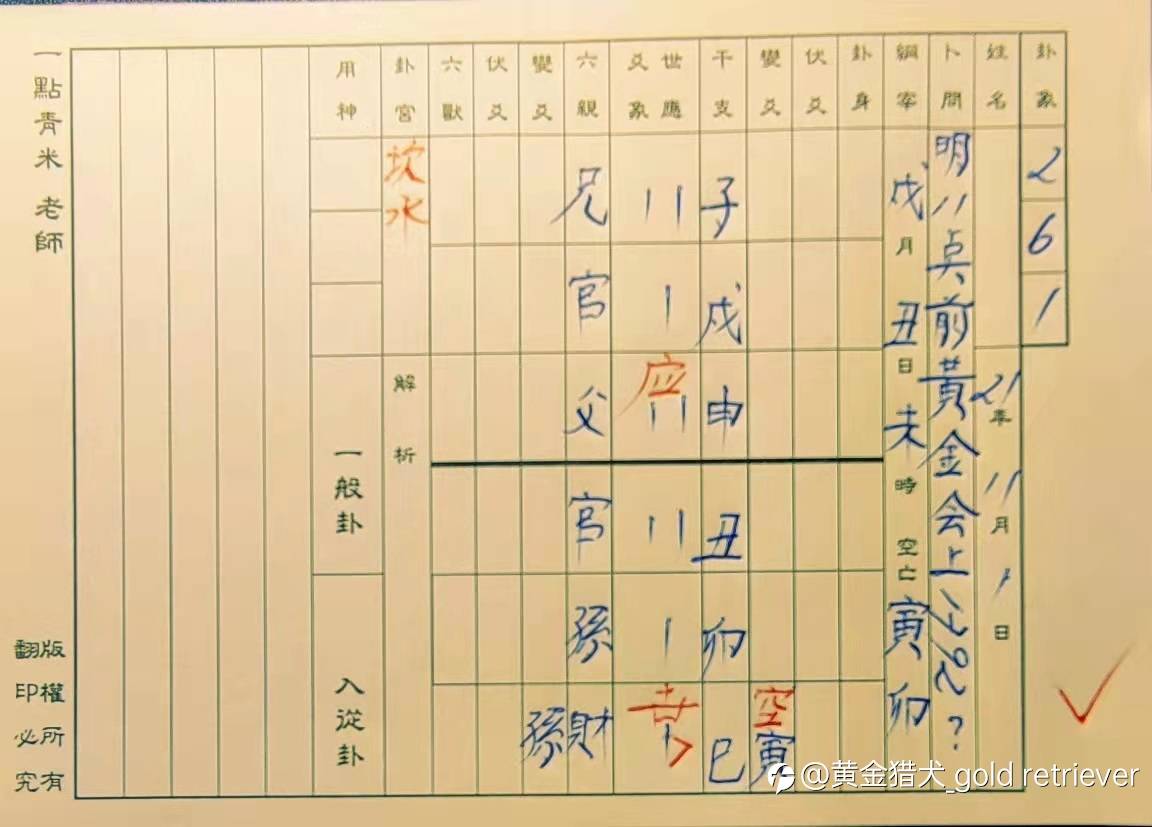 卦象 2 6 1
姓名 21年 11月 1日
卜問 明11点前黃金会上
綱宰 戊月 丑日 未時 空亡 寅卯
卦身
伏爻
變爻 空寅
干支 子 戌 申 丑 卯 巳
世應 爻象 应 世
六親 兄 官 父 官 孫 財
變爻 孫
伏爻
六獸
卦宮 坎水
解析
用神
一般卦
入從卦
一點青米 老師
版權所有
翻印必究
@黄金猎犬_gold retriever